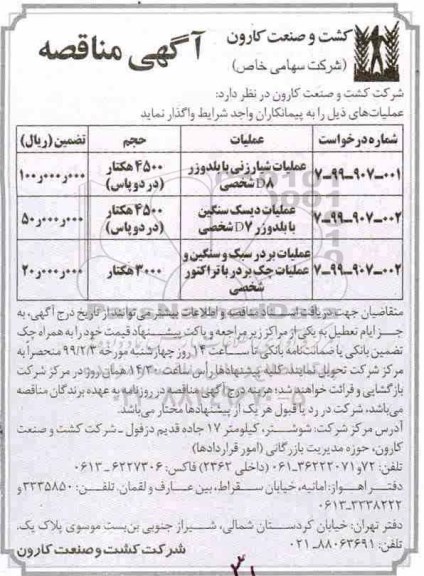 کشت و صنعت کارون
(شرکت سهامی خاص)
آگهی مناقصه
شرکت کشت و صنعت کارون در نظر دارد:
عملیات‌های ذیل را به پیمانکاران واجد شرایط واگذار نماید
شماره درخواست	عملیات	حجم	تضمین (ریال)
۷-۹۹-۹۰۷-۰۰۱	عملیات شیارزنی با بلدوزر D۸ شخصی	۴۵۰۰ هکتار (در دو پاس)	۱۰۰٫۰۰۰٫۰۰۰
۷-۹۹-۹۰۷-۰۰۲	عملیات دیسک سنگین با بلدوزر D۷ شخصی	۴۵۰۰ هکتار (در دو پاس)	۵۰٫۰۰۰٫۰۰۰
۷-۹۹-۹۰۷-۰۰۲	عملیات بردر سبک و سنگین و عملیات چک بردر با تراکتور شخصی	۳۰۰۰ هکتار	۲۰٫۰۰۰٫۰۰۰
متقاضیان جهت دریافت اسناد مناقصه و اطلاعات بیشتر می‌توانند از تاریخ درج آگهی، به
جز ایام تعطیل به یکی از مراکز زیر مراجعه و پاکت پیشنهاد قیمت خود را به همراه چک
تضمین بانکی یا ضمانتنامه بانکی تا ساعت ۱۴ روز چهارشنبه مورخه ۹۹/۲/۳ منحصراً به
مرکز شرکت تحویل نمایند. کلیه پیشنهادها رأس ساعت ۱۴/۳۰ همان روز در مرکز شرکت
بازگشایی و قرائت خواهند شد؛ هزینه درج آگهی مناقصه در روزنامه به عهده برندگان مناقصه
می‌باشد، شرکت در رد یا قبول هر یک از پیشنهادها مختار می‌باشد.
آدرس مرکز شرکت: شوشتر، کیلومتر ۱۷ جاده قدیم دزفول - شرکت کشت و صنعت
کارون، حوزه مدیریت بازرگانی (امور قراردادها)
تلفن: ۷۲ و ۳۶۲۲۲۰۷۱-۰۶۱ (داخلی ۲۳۶۲) فاکس: ۶۲۲۷۳۰۶-۰۶۱۳
دفتر اهواز: امانیه، خیابان سقراط، بین عارف و لقمان. تلفن: ۳۳۳۵۸۵۰ و
۳۳۳۸۲۲۲-۰۶۱۳
دفتر تهران: خیابان کردستان شمالی، شیراز جنوبی بن‌بست موسوی پلاک یک.
تلفن: ۸۸۰۶۳۶۹۱-۰۲۱
شرکت کشت و صنعت کارون